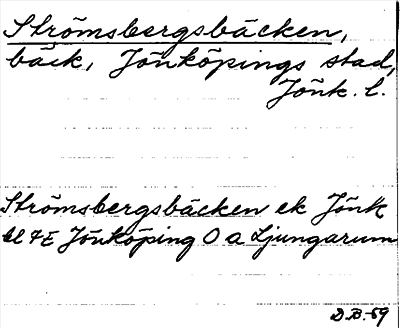 Strömsbergsbäcken,
bäck, Jönköpings stad,
Jönk. l.
Strömsbergsbäcken ek Jönk
bl 7E Jönköping O a Ljungarum
D.B.-69